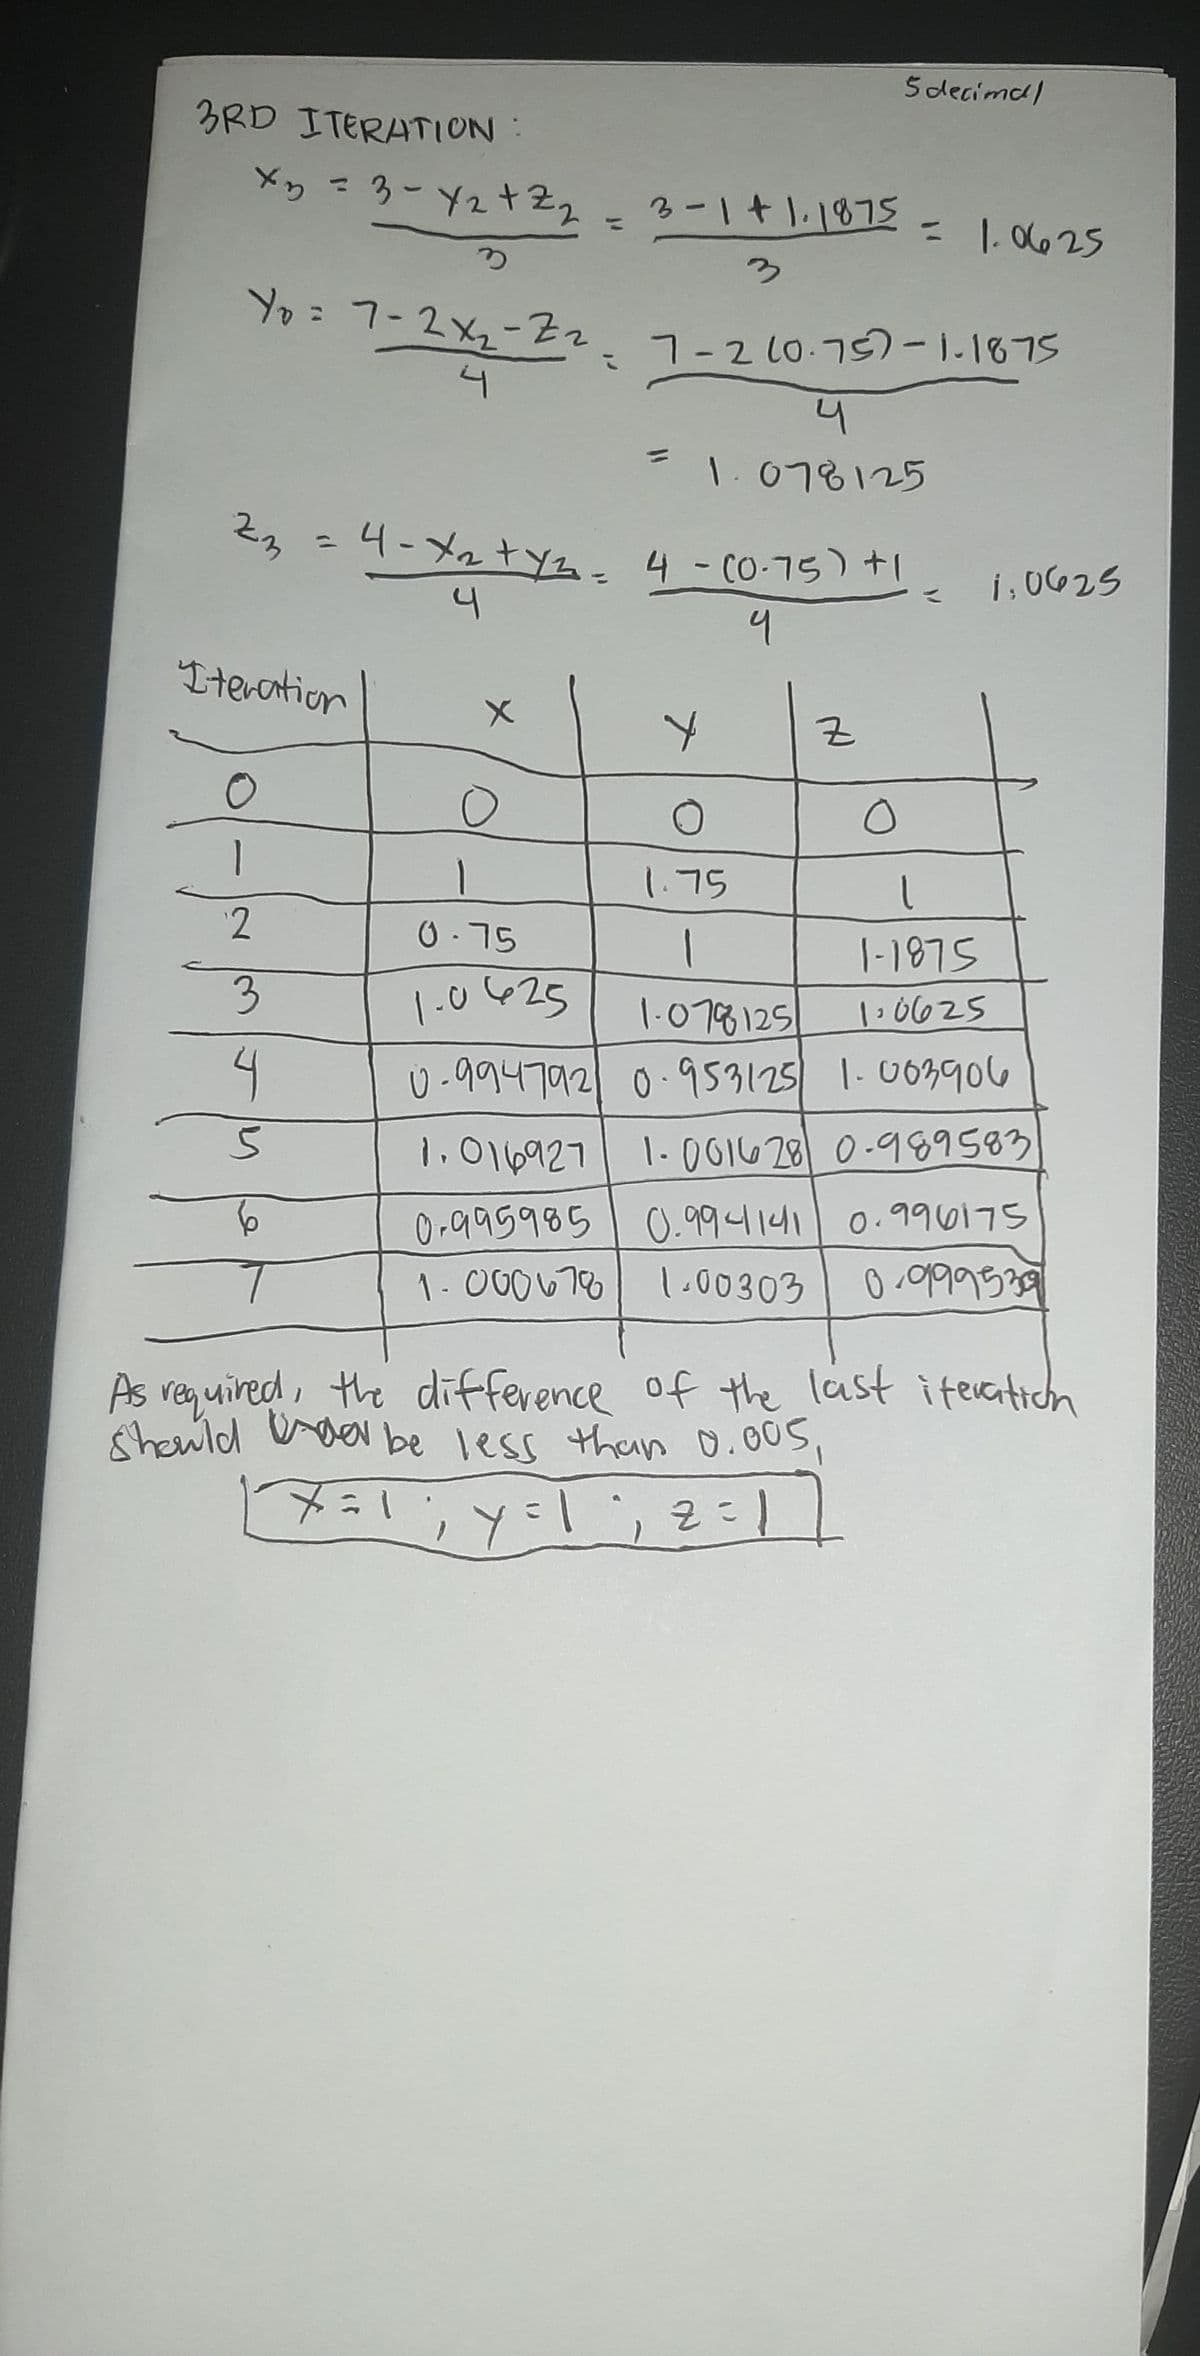 5 decimal
3RD ITERATION :
X3 = 3 - Y2 + Z2 / 3 = 3 - 1 + 1.1875 / 3 = 1.0625
Y3 = 7 - 2X2 - Z2 / 4 = 7 - 2 (0.75) - 1.1875 / 4
= 1.078125
Z3 = 4 - X2 + Y2 / 4 = 4 - (0.75) + 1 / 4 = 1.0625
Iteration | X | Y | Z
0 | 0 | 0 | 0
1 | 1 | 1.75 | 1
2 | 0.75 | 1 | 1.1875
3 | 1.0625 | 1.078125 | 1.0625
4 | 0.994792 | 0.953125 | 1.003906
5 | 1.016927 | 1.001628 | 0.989583
6 | 0.995985 | 0.994141 | 0.996175
7 | 1.000678 | 1.00303 | 0.999539
As required, the difference of the last iteration
should be less than 0.005,
X = 1 ; Y = 1 ; Z = 1